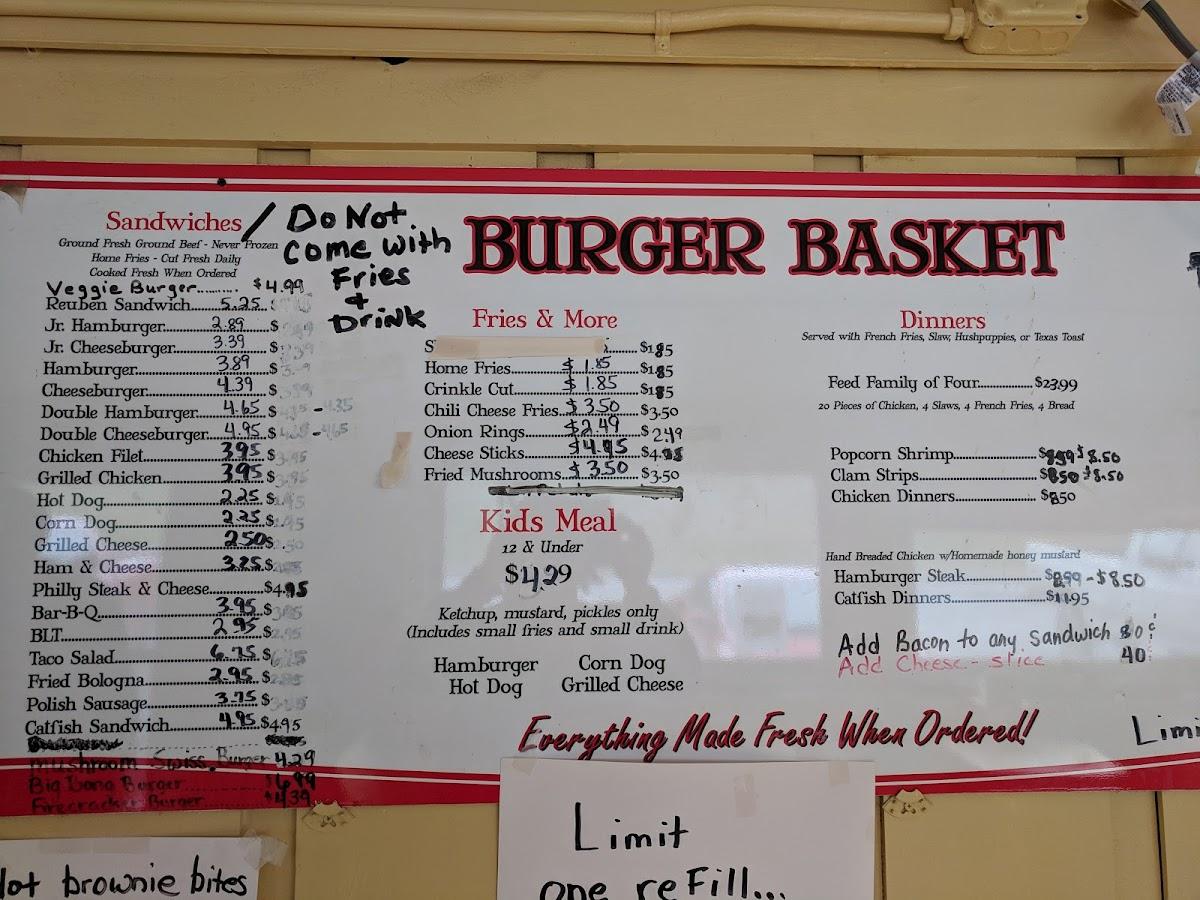 Sandwiches /
Do Not
come with
Fries
+
Drink
Ground Fresh Ground Beef - Never Frozen
Home Fries - Cut Fresh Daily
Cooked Fresh When Ordered
Veggie Burger.......... $4.99
Reuben Sandwich...... 5.25
Jr. Hamburger........ 2.89 $
Jr. Cheeseburger........ 3.39 $
Hamburger........ 3.89 $
Cheeseburger........ 4.39 $
Double Hamburger........ 4.65 $ - 4.35
Double Cheeseburger........ 4.95 $ - 4.65
Chicken Filet........ 3.95 $3.95
Grilled Chicken........ 3.95 $
Hot Dog........ 2.25 $
Corn Dog........ 2.25 $
Grilled Cheese........ 2.50 $
Ham & Cheese........ 3.25 $
Philly Steak & Cheese........ $4.95
Bar-B-Q........ 3.95 $
BLT........ 2.95 $
Taco Salad........ 6.75 $
Fried Bologna........ 2.95 $
Polish Sausage........ 3.75 $
Catfish Sandwich........ 4.95 $4.95
Mushroom Swiss Burger 4.29
Big Dong Burger........ $6.99
Firecracker Burger........ $4.39
BURGER BASKET
Fries & More
S........ $1.85
Home Fries........ $1.85 $1.85
Crinkle Cut........ $1.85 $1.85
Chili Cheese Fries........ $3.50 $3.50
Onion Rings........ $2.49 $2.49
Cheese Sticks........ $4.95 $4.95
Fried Mushrooms........ $3.50 $3.50
Kids Meal
12 & Under
$4.29
Ketchup, mustard, pickles only
(Includes small fries and small drink)
Hamburger Corn Dog
Hot Dog Grilled Cheese
Dinners
Served with French Fries, Slaw, Hushpuppies, or Texas Toast
Feed Family of Four........ $23.99
20 Pieces of Chicken, 4 Slaws, 4 French Fries, 4 Bread
Popcorn Shrimp........ $8.50
Clam Strips........ $8.50 $8.50
Chicken Dinners........ $8.50
Hand Breaded Chicken w/Homemade honey mustard
Hamburger Steak........ $8.99 - $8.50
Catfish Dinners........ $11.95
Add Bacon to any Sandwich 80¢
Add Cheese - slice 40¢
Everything Made Fresh When Ordered!
Limi
Hot brownie bites
Limit
one refill...